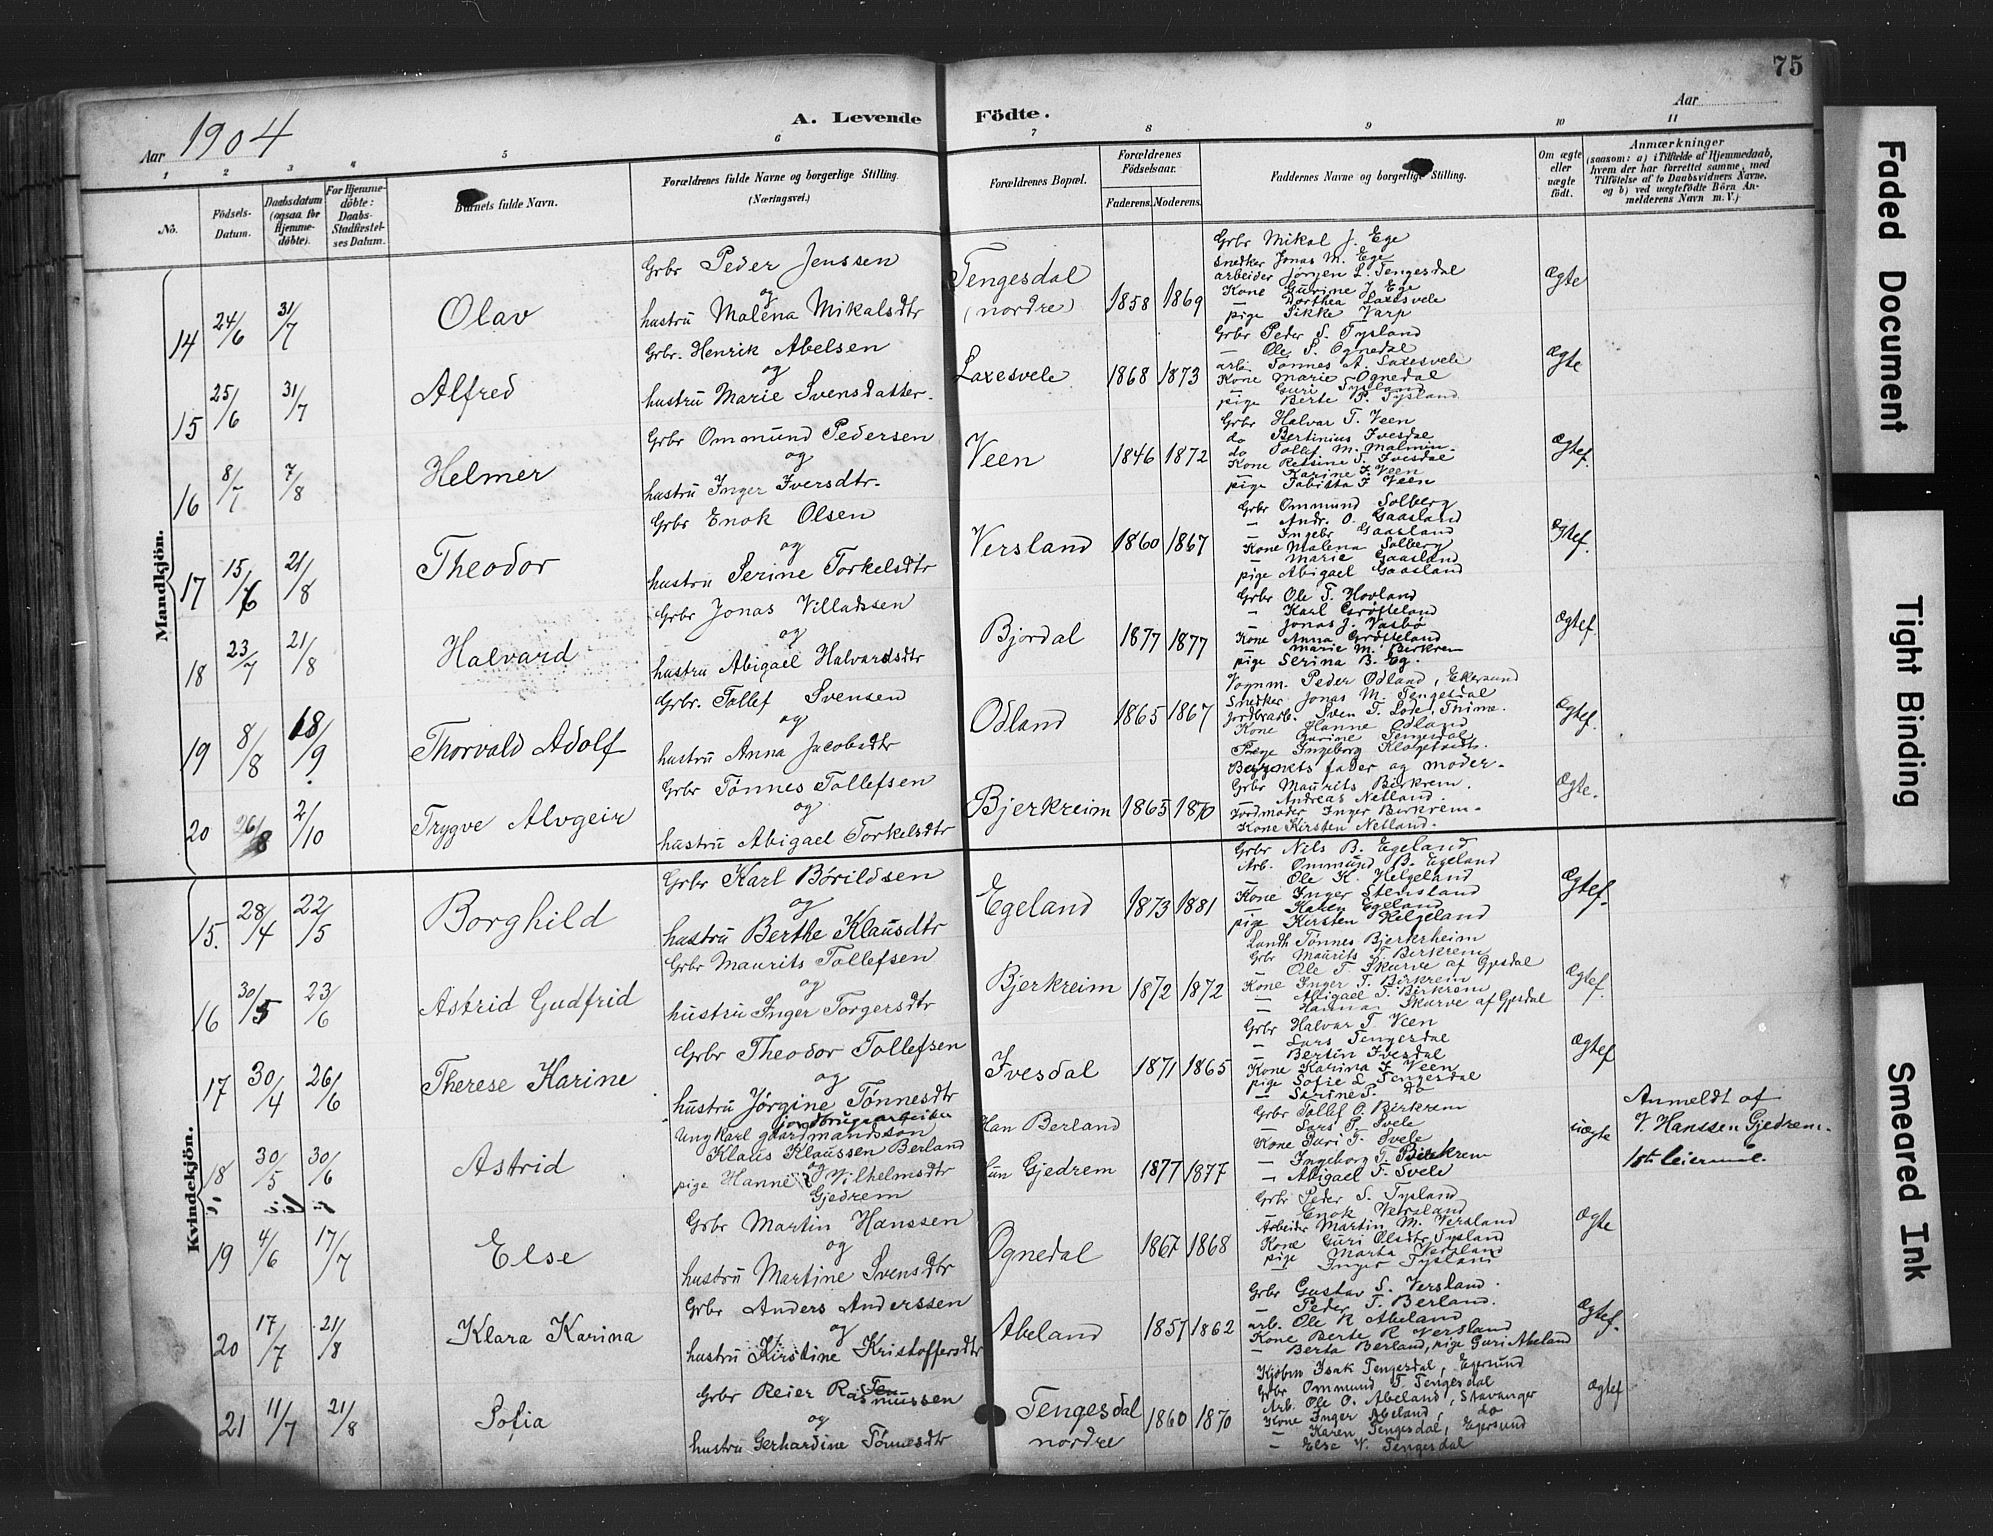 75
Aar 1904
A. Levende Födte.
Aar
1 2 3 4 5 6 7 8 9 10 11
No.
Födsels-Datum.
Daabsdatum (ogsaa for Hjemmedöbte).
For Hjemmedöbte: Daabs-Stadfæstelses Datum.
Barnets fulde Navn.
Forældrenes fulde Navne og borgerlige Stilling. (Næringsvei.)
Forældrenes Bopæl.
Forældrenes Födselsaar.
Faderens. Moderens.
Faddernes Navne og borgerlige Stilling.
Om ægte eller uægte født.
Anmærkninger
(saasom: a) i Tilfælde af Hjemmedaab, hvem der har forrettet samme, med Tilföielse af to Daabsvidners Navne, og b) ved uægtefödte Börn Anmelderens Navn m. V.)
Mandkjön.
14 24/6 31/7 Olav
Grbr Peder Jenssen
og
hustru Malena Mikalsdtr
Tengesdal
(nordre)
1858 1869
Grbr Mikal J. Ege
Snedker Jonas M. Ege
arbeider Jørgen L. Tengesdal
Kone Gurine J. Ege
— Dorthea Laxesvele
pige Sikke Varp
Ægte
15 25/6 31/7 Alfred
Grbr. Henrik Abelsen
og
hustru Marie Svensdatter.
Laxesvele
1868 1873
Grbr Peder S. Tysland
— Ole S. Ognedal
arb. Tønnes A. Laxesvele
Kone Marie Ognedal
— Guri Tysland
pige Berte P. Tysland
Ægte
16 8/7 7/8 Helmer
Grbr Ommund Pedersen
og
hustru Inger Iversdtr.
Veen
1846 1872
Grbr Halvar T. Veen
do Bertinius Ivesdal
do Tollef M. Malmin.
Kone Retsine T. Ivesdal
— Karine I. Veen
pige Tabitta I Veen
Ægtef.
17 15/6 21/8 Theodor
Grbr Enok Olsen
og
hustru Serine Torkelsdtr
Versland
1860 1867
Grbr Ommund Solberg
— Andr. O. Gaasland
— Ingebr Gaasland
Kone Malena Solberg
— Marie Gaasland
pige Abigael Gaasland
Ægtef.
18 23/7 21/8 Halvard
Grbr Jonas Villadssen
og
hustru Abigael Halvardsdtr
Bjordal
1877 1877
Grbr Ole T. Hovland
— Karl Grøfteland
— Jonas J. Vasbø
Kone Anna Grøfteland
— Marie M. Birkrem
pige Serina B. Eg.
Ægtef.
19 8/8 18/9 Thorvald Adolf
Grbr. Tollef Svensen
og
hustru Anna Jacobsdtr
Odland
1865 1867
Vognm. Peder Odland, Ekersund
Snedker Jonas M. Tengesdal
Jordbrarb. Sven T. Lode, Thime.
Kone Hanne Odland
— Gurine Tengesdal
Pige Ingeborg
Ægtef.
20 26/8 2/10 Trygve Alvgeir
Grbr Tønnes Tollefsen
og
hustru Abigael Torkelsdtr
Bjerkreim
1865 1870
Barnets fader og moder.
Grbr Maurits Birkrem.
— Andreas Netland
Jordmoder Inger Birkrem.
Kone Kirsten Netland.
Ægte.
Kvindekjön.
15. 28/4 22/5 Borghild
Grbr Karl Børildsen
og
hustru Berthe Klausdtr
Egeland
1873 1881
Grbr Nils B. Egeland
Arb. Ommund B. Egeland
— Ole K. Helgeland
Kone Inger Stensland
— Karen Egeland
pige Kirsten Helgeland
Ægtef.
16 30/5 23/6 Astrid Gudfrid
Grbr Maurits Tollefsen
og
hustru Inger Torgersdtr
Bjerkreim
1872 1872
Landh Tønnes Bjerkrheim
Grbr Maurits T. Birkrem
— Ole T Skurve af Gjesdal
Kone Inger T. Birkrem
— Abigael T. Birkrem
— Hanna Skurve af Gjesdal
Ægtef.
17 30/4 26/6 Therese Karine
Grbr Theodor Tollefsen
og
hustru Jørgine Tønnesdtr
Ivesdal
1871 1865
Grbr Halvar T. Veen
— Lars Tengesdal
— Bertin Ivesdal
Kone Karina I Veen
pige Sofie L Tengesdal
— Serine S. do
Ægtef
18 30/5 30/6 Astrid
jordbrugsarbeider
Ungkarl gaardmandssön
Klaus Klaussen Berland
og
pige Hanne Vilhelmsdtr
Gjedrem
Han Berland
hun Gjedrem
1877 1877
Grbr Tollef O. Birkrem
— Lars T. Svele
Kone Guri T. Svele
— Ingeborg T. Birkrem
— Abigael T. Svele
uægte
Anmeldt af
V. Hanssen Gjedrem.
1ste leiermaal.
19 4/6 17/7 Else
Grbr Martin Hanssen
og
hustru Martine Svensdtr
Ognedal
1867 1868
Grbr Peder S. Tysland
— Enok Versland
Arbeider Martin M. Versland
Kone Guri Olsdtr Tysland
pige Marta Versland
— Inger Tysland
Ægte
20 17/7 21/8 Klara Karina
Grbr Anders Anderssen
og
hustru Kirstine Kristoffersdtr
Abeland
1857 1862
Grbr Gustav S. Versland.
— Peder T. Berland.
arb. Ole R Abeland
Kone Berte R Versland
— Berta Berland, pige Guri Abeland
Ægtef.
21 11/7 21/8 Sofia
Grbr Reier Rasmussen
og
hustru Gerhardine Tönnesdtr
Tengesdal
nordre
1860 1870
Kjøbm Isak Tengesdal, Egersund
Grbr Ommund T. Tengesdal
Arb. Ole O. Abeland, Stavanger
Kone Inger Abeland, do
— Karen Tengesdal, Egersund
— Else V. Tengesdal
Ægtef
Faded Document
Tight Binding
Smeared Ink